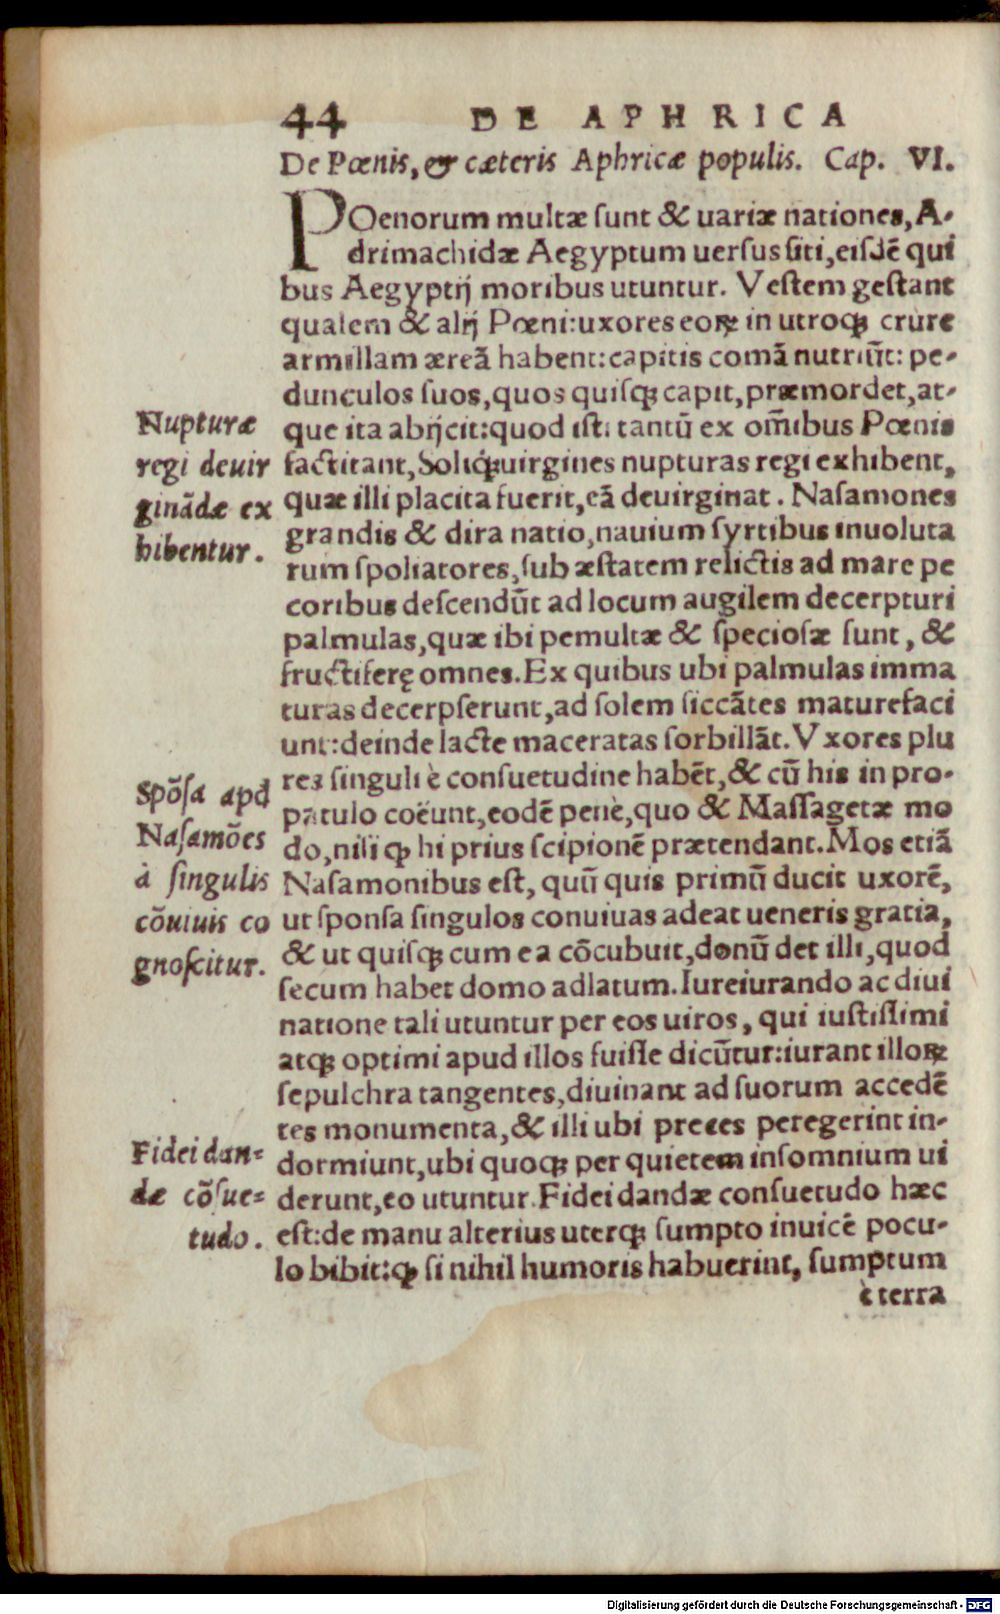 44 DE APHRICA
De Pœnis, & cæteris Aphricæ populis. Cap. VI.
POenorum multæ ſunt & uariæ nationes, A-
drimachidæ Aegyptum uerſus ſiti, eiſdē qui
bus Aegyptij moribus utuntur. Veſtem geſtant
qualem & alij Pœni: uxores eoꝝ in utroqꝫ crure
armillam æreã habent: capitis comã nutriũt: pe-
dunculos ſuos, quos quiſqꝫ capit, præmordet, at-
que ita abijcit: quod iſti tantũ ex om̃ibus Pœnis
factitant, Soliqꝫ uirgines nupturas regi exhibent,
quæ illi placita fuerit, eã deuirginat. Naſamones
grandis & dira natio, nauium ſyrtibus inuoluta
rum ſpoliatores, ſub æſtatem relictis ad mare pe
coribus deſcendũt ad locum augilem decerpturi
palmulas, quæ ibi pemultæ & ſpecioſæ ſunt, &
fructiferę omnes. Ex quibus ubi palmulas imma
turas decerpſerunt, ad ſolem ſiccãtes maturefaci
unt: deinde lacte maceratas ſorbillãt. Vxores plu
res ſinguli è conſuetudine habẽt, & cũ his in pro-
patulo coëunt, eodẽ penè, quo & Maſſagetæ mo
do, niſi ꝙ hi prius ſcipionẽ prætendant. Mos etiã
Naſamonibus eſt, quũ quis primũ ducit uxorẽ,
ut ſponſa ſingulos conuiuas adeat ueneris gratia,
& ut quiſqꝫ cum ea cõcubuit, donũ det illi, quod
ſecum habet domo adlatum. Iureiurando ac diui
natione tali utuntur per eos uiros, qui iuſtiſſimi
atqꝫ optimi apud illos fuiſſe dicũtur: iurant illoꝝ
ſepulchra tangentes, diuinant ad ſuorum accedẽ
tes monumenta, & illi ubi preces peregerint in-
dormiunt, ubi quoqꝫ per quietem inſomnium ui
derunt, eo utuntur. Fidei dandæ conſuetudo hæc
eſt: de manu alterius uterqꝫ ſumpto inuicẽ pocu-
lo bibit: ꝙ ſi nihil humoris habuerint, ſumptum
è terra
Nupturæ
regi deuir
ginãdæ ex
hibentur.
Spõſa apd
Naſamões
à ſingulis
cõuiuis co
gnoſcitur.
Fidei dan-
dæ cõſue-
tudo.
Digitalisierung gefördert durch die Deutsche Forschungsgemeinschaft - DFG